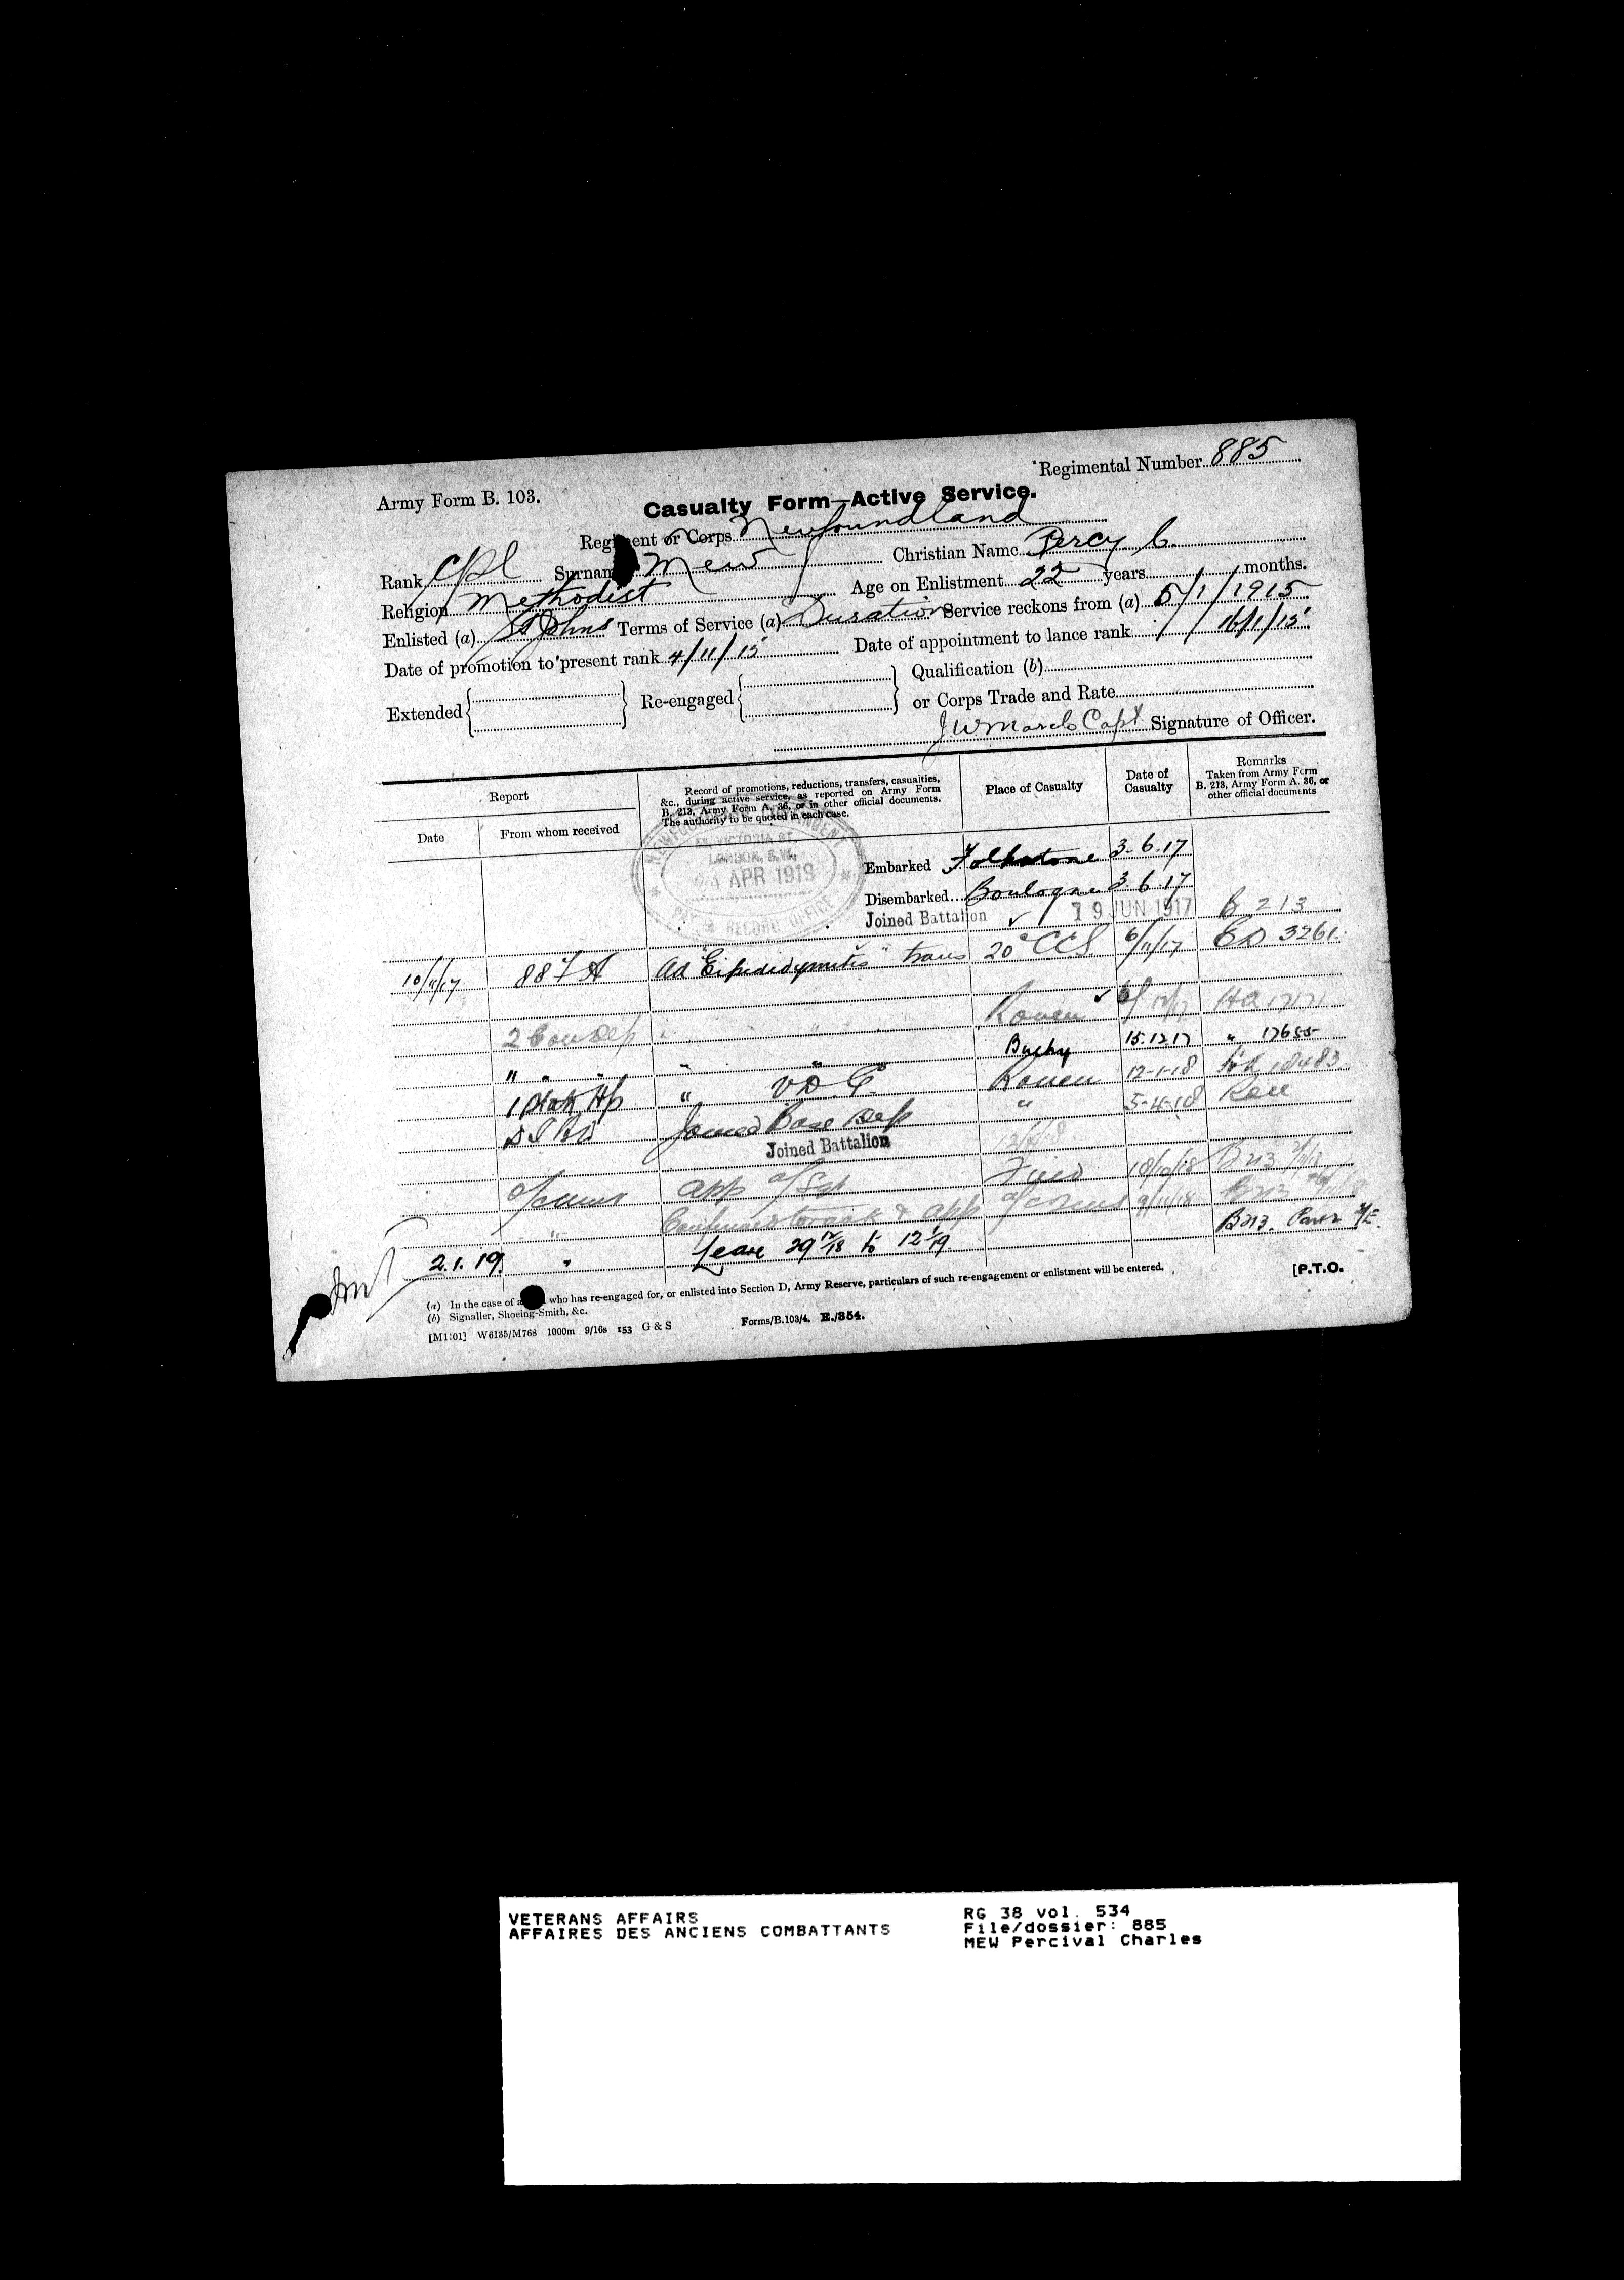 Regimental Number 885
Army Form B. 103.
Casualty Form—Active Service.
Regiment or Corps Newfoundland
Rank Cpl Surname Mew Christian Name Percy C.
Religion Methodist Age on Enlistment 22 years months.
Enlisted (a) St Johns Terms of Service (a) Duration Service reckons from (a) 5/1/1915
Date of promotion to present rank 4/11/15 Date of appointment to lance rank 16/1/15
Extended Re-engaged Qualification (b)
or Corps Trade and Rate
J W March Capt Signature of Officer.
Report
Date
From whom received
Record of promotions, reductions, transfers, casualties, &c., during active service, as reported on Army Form B. 213, Army Form A. 36, or in other official documents. The authority to be quoted in each case.
Place of Casualty
Date of Casualty
Remarks
Taken from Army Form B. 213, Army Form A. 36, or other official documents
VICTORIA ST.
LONDON, S.W.
24 APR 1919
PAY & RECORD OFFICE
Embarked Folkestone 3.6.17
Disembarked Boulogne 3.6.17
Joined Battalion 19 JUN 1917 B 213
10/11/17 88 FA Ad "Eipedidymitis" trans 20 CCS 6/11/17 3261
2 Con Dep " " Rouen
" " " " " Buchy 15.12.17 " 17655
1 Stat Hp " V.D.G. Rouen 12-1-18 18483
Joined Base Dep " 5-4-18
Joined Battalion
app a/Sgt Field 18/10/18 B213
" 9/11/18 B213
2.1.19 " Leave 29 12/18 to 12 1/19 B213
(a) In the case of a who has re-engaged for, or enlisted into Section D, Army Reserve, particulars of such re-engagement or enlistment will be entered.
(b) Signaller, Shoeing-Smith, &c.
[P.T.O.
W6135/M768 1000m 9/16s G & S Forms/B.103/4. E./354.
VETERANS AFFAIRS
AFFAIRES DES ANCIENS COMBATTANTS
RG 38 vol. 534
File/dossier: 885
MEW Percival Charles